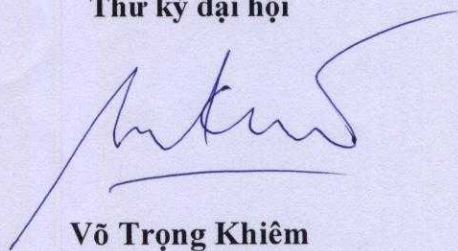 Thư ký đại hội
Võ Trọng Khiêm